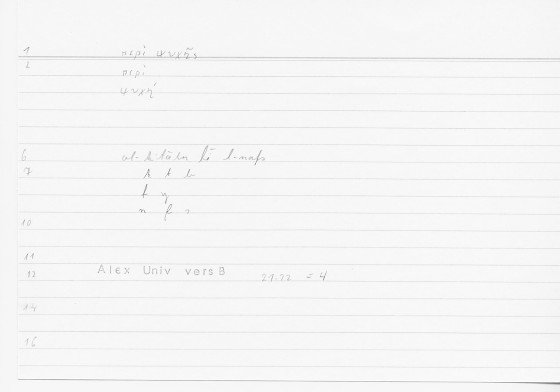 1 περὶ ψυχῆς
2 περὶ
ψυχή
6 al-kitāb fī l-nafs
7 k t b
f y
n f s
10
11
12 Alex Univ vers B 21.22 = 4
14
16